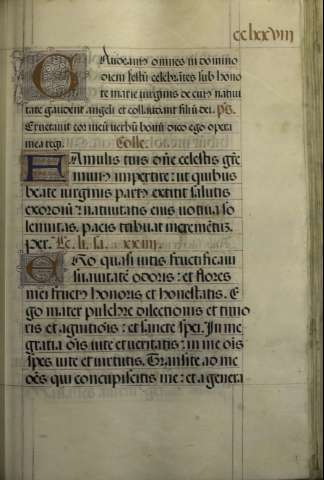 cclxxviii
Gaudeamus omnes in domino
diem festū celebrātes sub hono
re marie virginis de cuius nativi
tate gaudent angeli et collaudant filiū dei. ps.
Eructavit cor meū verbū bonū dico ego opera
mea regi. Colle.
Famulis tuis dñe celestis gr̄e
munus impertire: ut quibus
beate virginis partus extitit salutis
exordiū: nativitatis eius votiva so
lennitas. pacis tribuat incremētū.
per. Lc. li. sa. xxiiii.
Ego quasi vitis fructificavi
suavitatē odoris: et flores
mei fructus honoris et honestatis. E
go mater pulchre dilectionis et timo
ris et agnitiōis: et sancte spei. In me
gratia oīs vite et veritatis: in me oīs
spes vite et virtutis. Transite ad me
oēs qui concupiscitis me: et a genera